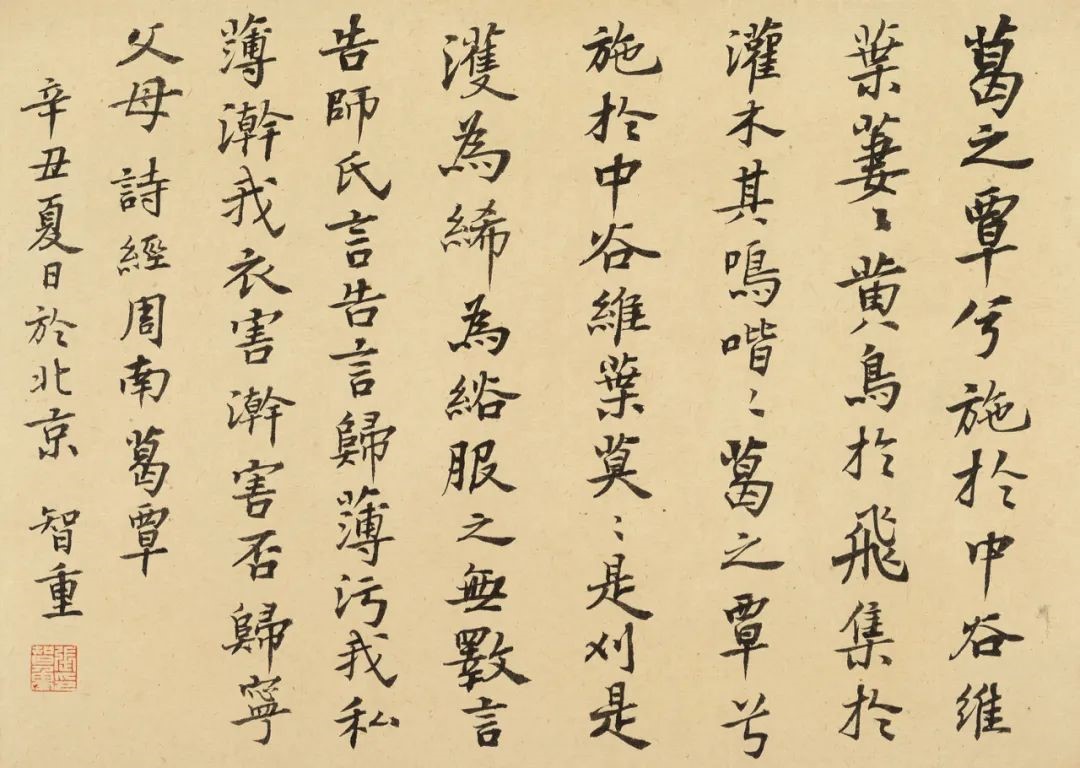 葛之覃兮施於中谷維
葉萋〻黄鳥於飛集於
灌木其鳴喈〻葛之覃兮
施於中谷維葉莫〻是刈是
濩為絺為綌服之無斁言
告師氏言告言歸薄污我私
薄澣我衣害澣害否歸寧
父母 詩經周南葛覃
辛丑夏日於北京 智重